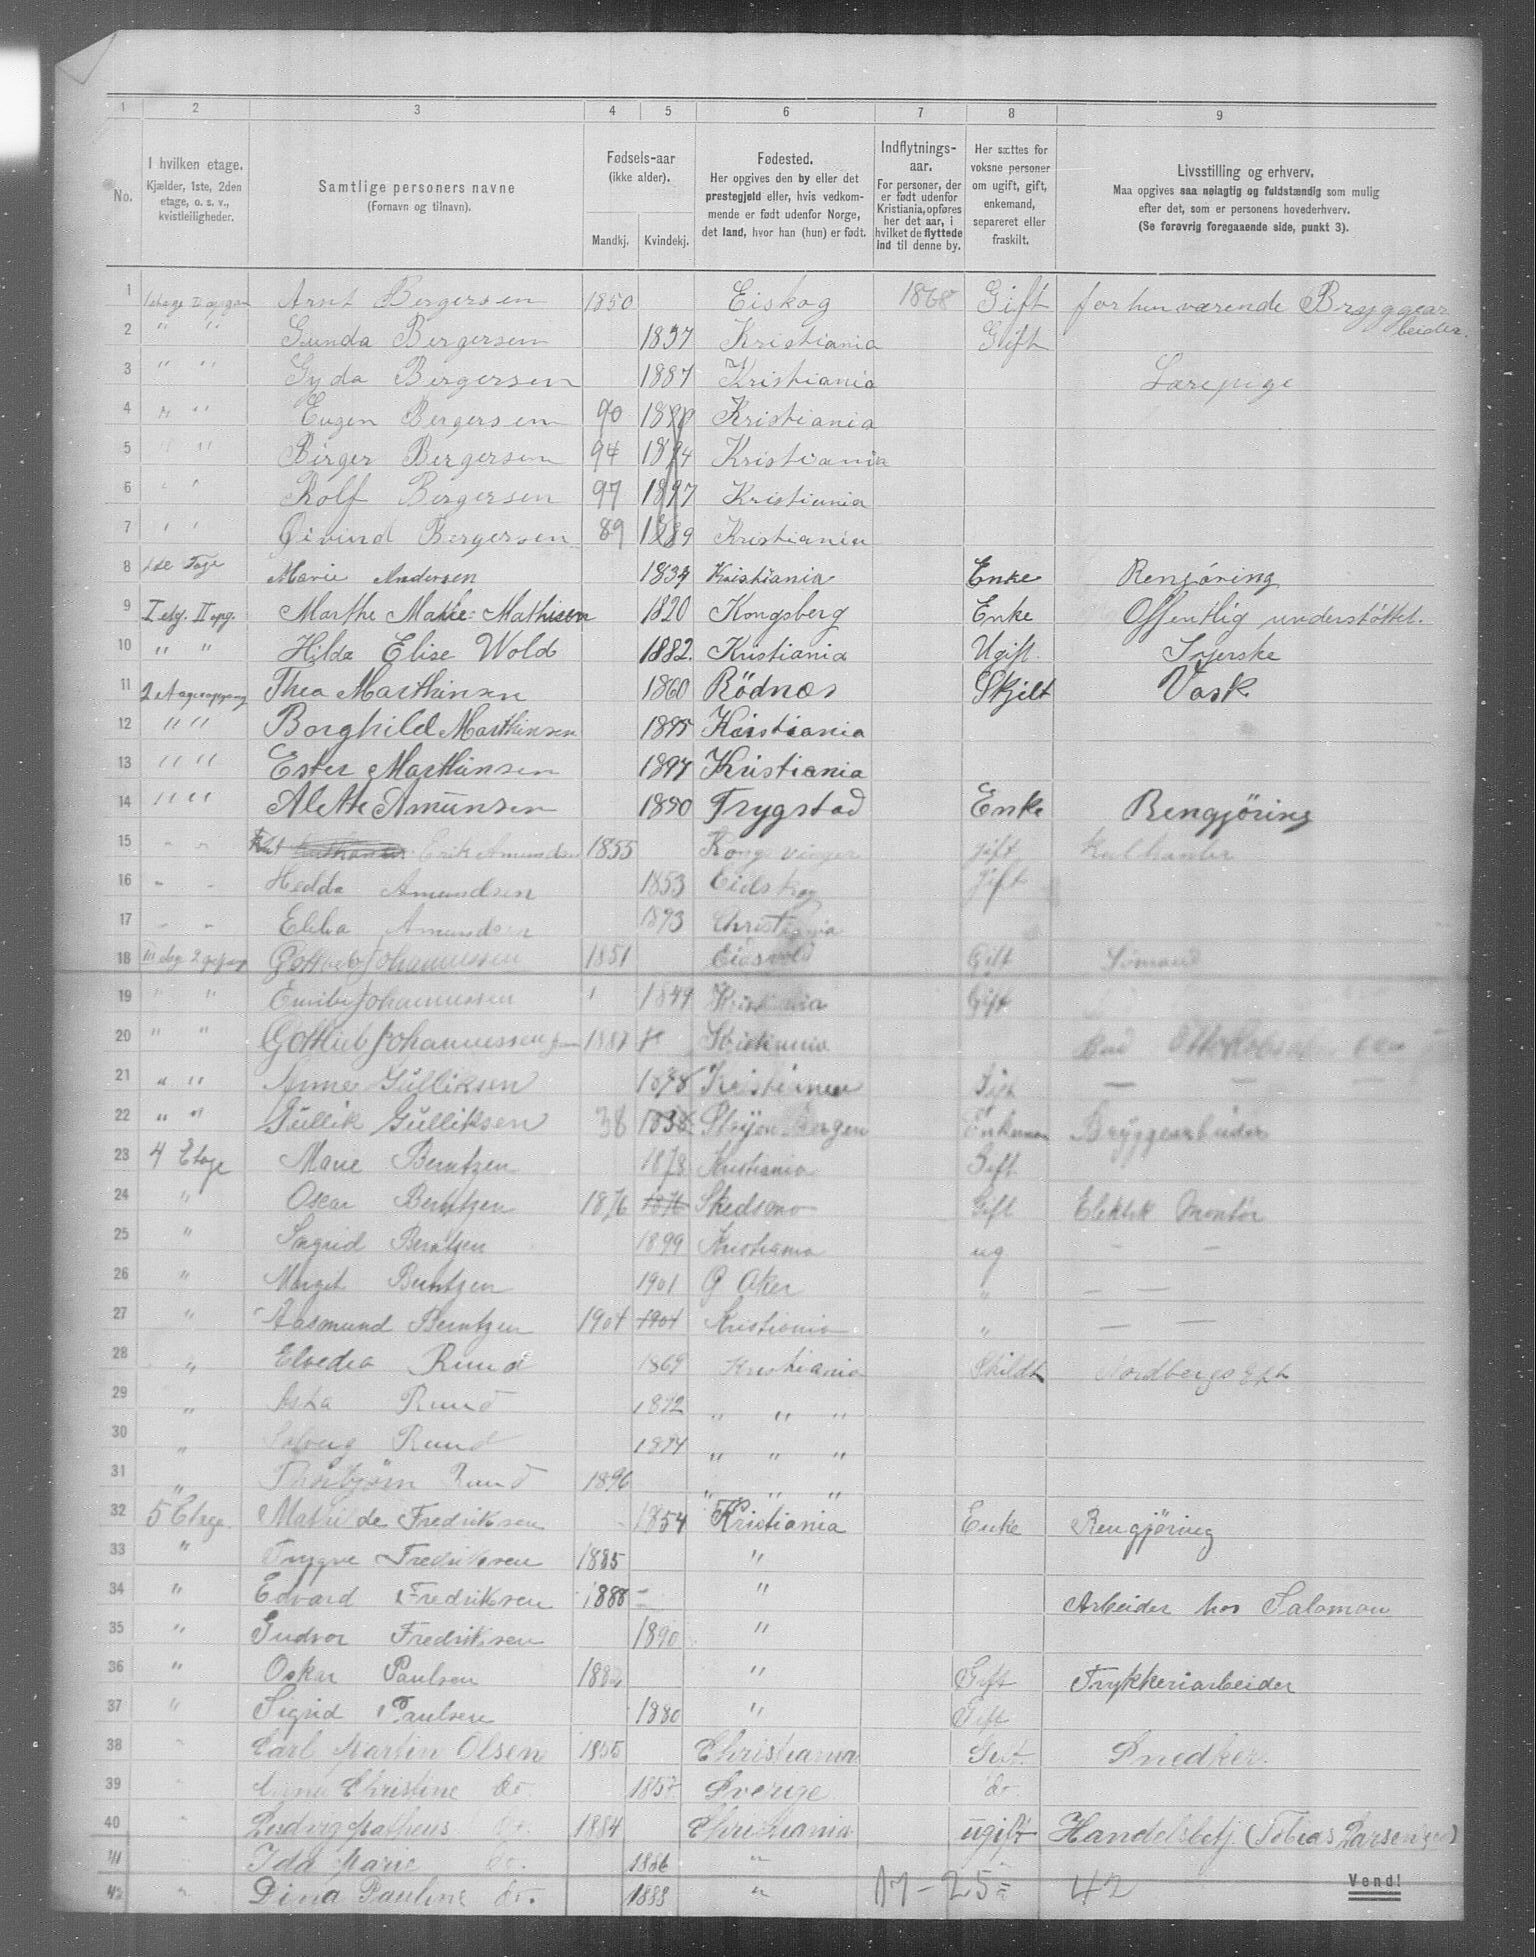 1 2 3 4 5 6 7 8 9
No.
I hvilken etage.
Kjælder, 1ste, 2den
etage, o. s. v.,
kvistleiligheder.
Samtlige personers navne
(Fornavn og tilnavn).
Fødsels-aar
(ikke alder).
Mandkj. Kvindekj.
Fødested.
Her opgives den by eller det
prestegjeld eller, hvis vedkom-
mende er født udenfor Norge,
det land, hvor han (hun) er født.
Indflytnings-
aar.
For personer, der
er født udenfor
Kristiania, opføres
her det aar, i
hvilket de flyttede
ind til denne by.
Her sættes for
voksne personer
om ugift, gift,
enkemand,
separeret eller
fraskilt.
Livsstilling og erhverv.
Maa opgives saa nøiagtig og fuldstændig som mulig
efter det, som er personens hovederhverv.
(Se forøvrig foregaaende side, punkt 3).
1 Arnt Bergersen 1850 Eiskog 1868 Gift forhenværende Bryggear
beider.
2 " " Gunda Bergersen 1857 Kristiania Gift
3 " " Gyda Bergersen 1887 Kristiania Lærepige
4 " " Eugen Bergersen 90 1890 Kristiania
5 " " Birger Bergersen 94 1894 Kristiania
6 " " Rolf Bergersen 97 1897 Kristiania
7 " " Øivind Bergersen 89 1889 Kristiania
8 Marie Andersen 1834 Kristiania Enke Rengøring
9 I etg. II opg. Marthe Marie Mathisen 1820 Kongsberg Enke Offentlig understöttet.
10 " " Hilda Elise Wold 1882. Kristiania Ugift. Syerske
11 2 Etageopgang Thea Marthinsen 1860 Rödnæs Skjilt Vask
12 " " Borghild Marthinsen 1895 Kristiania
13 " " Ester Marthinsen 1897 Kristiania
14 " " Alette Amunsen 1890 Trygstad Enke Rengjöring
15 " " Erik Amundsen 1855 Kongsvinger gift
16 " " Hedda Amundsen 1853 Eidskog gift
17 " " Ebba Amundsen 1893 Christiania
18 Gottlieb Johannessen 1851 Eidsvold Gift Sömand
19 " " Emilie Johannessen 1849 Kristiania Gift
20 " " Gottlieb Johannessen 1887 Kristiania
21 " " Anne Gulliksen 1878 Kristiania Gift — — —
22 " " Gullik Gulliksen 38 1838 Bergen Enkeman Bryggearbeider
23 4 Etage Marie Berntzen 1878 Kristiania Gift
24 " Oscar Berntzen 1876 1876 Skedsmo Gift Elektrk Montör
25 " Sagrid Berntzen 1899 Kristiania ug — —
26 " Margit Berntzen 1901 Aker " — —
27 " Aasmund Berntzen 1904 1904 Kristiania " — —
28 " Elvedia Ruud 1869 Kristiania Skildt Nordbergs
29 " Ruud 1892 " " "
30 " Solveig Ruud 1894 " " "
31 " Thorbjørn Ruud 1896 " " "
32 5 Etage Matilde Fredriksen 1854 Kristiania Enke Rengjöring
33 " Trygve Fredriksen 1885 "
34 " Edvard Fredriksen 1888 — " Arbeider hos Salomon
35 " Gudvor Fredriksen 1890 "
36 " Oskar Paulsen " Gift Trykkeriarbeider
37 " Sigrid Paulsen 1880 " Gift
38 " Carl Martin Olsen 1855 Christiania Gift. Snedker.
39 " Christine do. Sverige do.
40 " Ludvig Matheus do. 1884 Christiania ugift Handelsbetj. (Tobias Larsen
41 " Ida Marie do. 1886 "
42 " Dina Pauline do. 1888 " 17 - 25 = 42
Vend!